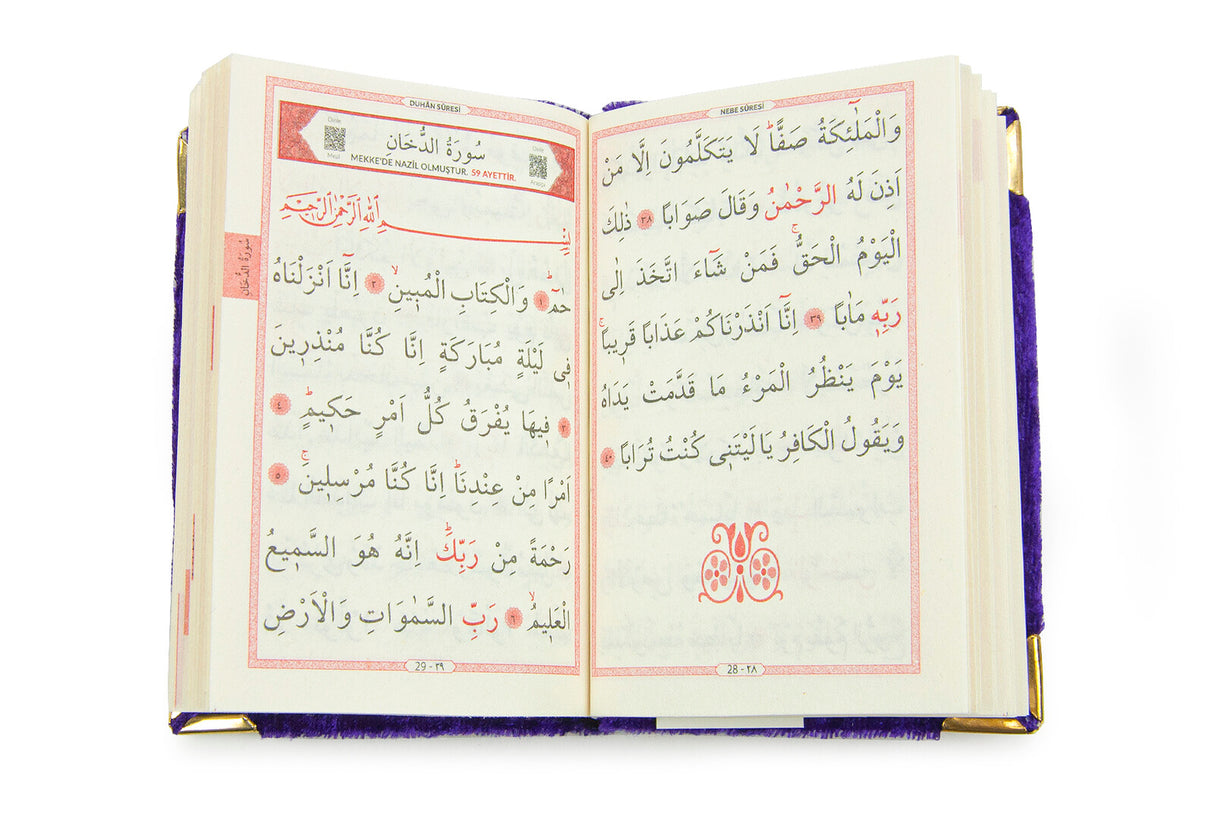 NEBE SÛRESİ
وَالْمَلٰٓئِكَةُ صَفًّاۜ لَا يَتَكَلَّمُونَ اِلَّا مَنْ
اَذِنَ لَهُ الرَّحْمٰنُ وَقَالَ صَوَابًا ٣٨ ذٰلِكَ
الْيَوْمُ الْحَقُّۚ فَمَنْ شَٓاءَ اتَّخَذَ اِلٰى
رَبِّه۪ مَاٰبًا ٣٩ اِنَّٓا اَنْذَرْنَاكُمْ عَذَابًا قَر۪يبًاۚ
يَوْمَ يَنْظُرُ الْمَرْءُ مَا قَدَّمَتْ يَدَاهُ
وَيَقُولُ الْكَافِرُ يَالَيْتَن۪ي كُنْتُ تُرَابًا ٤٠
28 - ٢٨
DUHÂN SÛRESİ
Dinle
Meal
سُورَةُ الدُّخَانِ
MEKKE'DE NAZİL OLMUŞTUR. 59 AYETTİR.
Dinle
Arapça
بِسْمِ اللّٰهِ الرَّحْمٰنِ الرَّح۪يمِ
حٰمٓۜ ١ وَالْكِتَابِ الْمُب۪ينِۙ ٢ اِنَّٓا اَنْزَلْنَاهُ
ف۪ي لَيْلَةٍ مُبَارَكَةٍ اِنَّا كُنَّا مُنْذِر۪ينَ
٣ ف۪يهَا يُفْرَقُ كُلُّ اَمْرٍ حَك۪يمٍۜ ٤
اَمْرًا مِنْ عِنْدِنَاۜ اِنَّا كُنَّا مُرْسِل۪ينَۚ ٥
رَحْمَةً مِنْ رَبِّكَۜ اِنَّهُ هُوَ السَّم۪يعُ
الْعَل۪يمُۙ ٦ رَبِّ السَّمٰوَاتِ وَالْاَرْضِ
29 - ٢٩
سُورَةُ الدُّخَانِ